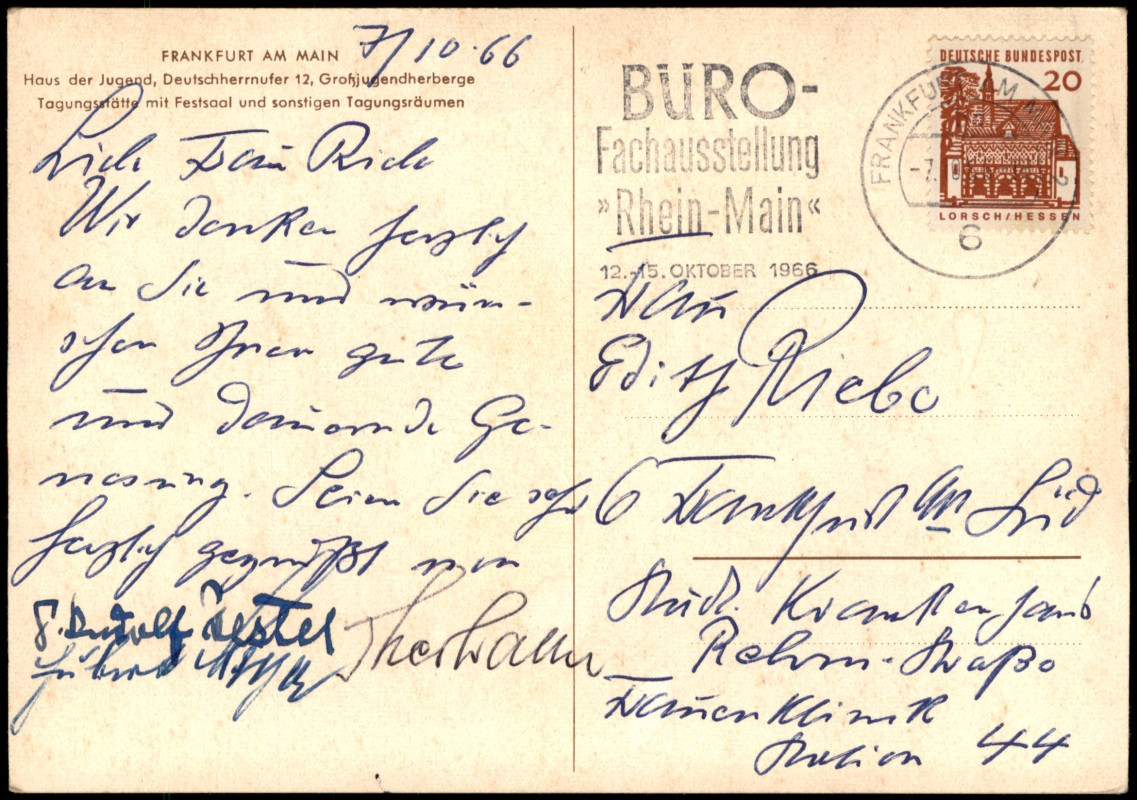 FRANKFURT AM MAIN
Haus der Jugend, Deutschherrnufer 12, Großjugendherberge
Tagungsstätte mit Festsaal und sonstigen Tagungsräumen
7/10.66
Liebe Frau Riebe
Wir denken herzlich
an Sie und wün-
schen Ihnen gute
und dauernde Ge-
nesung. Seien Sie sehr
herzlich gegrüßt von
Rudolf
BÜRO-
Fachausstellung
»Rhein-Main«
12.-15. OKTOBER 1966
FRANKFURT AM MAIN
-7.
6
DEUTSCHE BUNDESPOST
20
LORSCH/HESSEN
Frau
Edith Riebe
6 Frankfurt am Süd
Städt. Krankenhaus
Rehn-Straße
Frauenklinik
Station 44